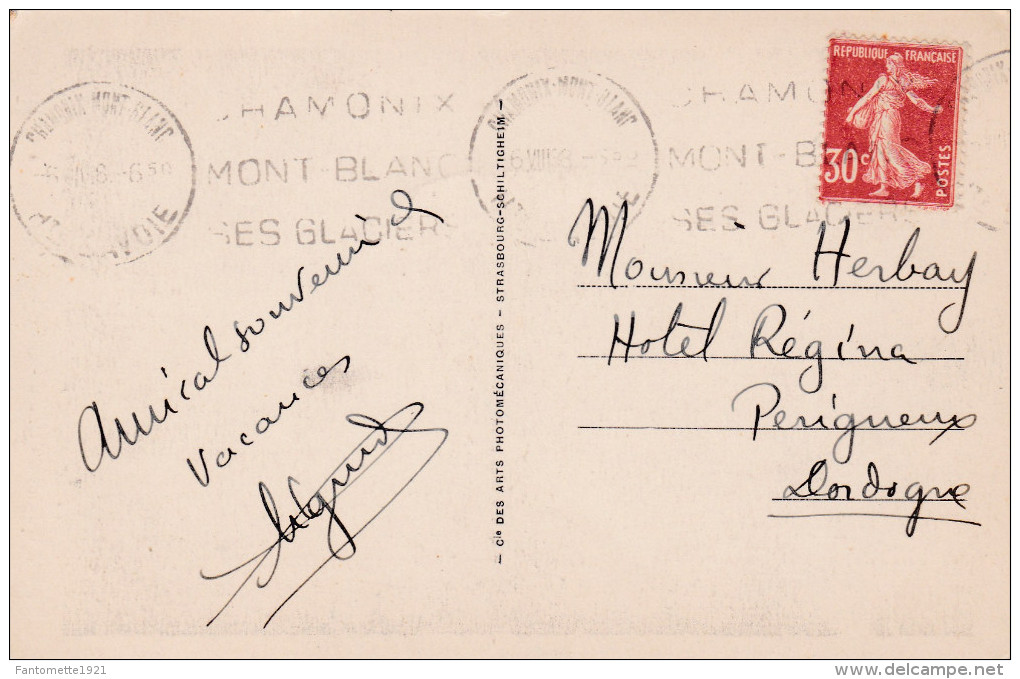 CHAMONIX MONT-BLANC
CHAMONIX
MONT-BLANC
SES GLACIERS
CHAMONIX-MONT-BLANC
CHAMONIX
MONT-BLANC
SES GLACIERS
RÉPUBLIQUE FRANÇAISE
30c
POSTES
Amical souvenir
vacances
— Cie DES ARTS PHOTOMÉCANIQUES - STRASBOURG-SCHILTIGHEIM —
Monsieur Herbay
Hotel Régina
Perigueux
Dordogne
Fantomette1921
delcampe.net